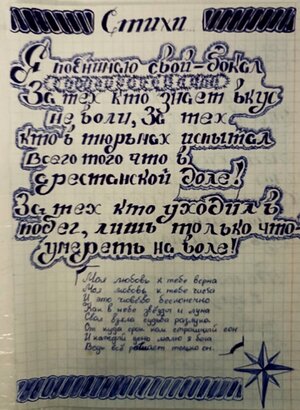 Стихи
Я поднимаю свой бокал
За тех кто знает вкус
неволи, За тех
кто в тюрьмах испытал
Всего того что в
арестанской доле!
За тех кто уходил в
побег, лишь только что-
умереть на воле!
Моя любовь к тебе верна
Моя любовь к тебе чиста
И это чувство бесконечно
Как в небе звёзды и луна
Свои взяла судьба разлука
От куда срок как страшный сон
И каждый день молю я бога
Ведь всё решает только он.